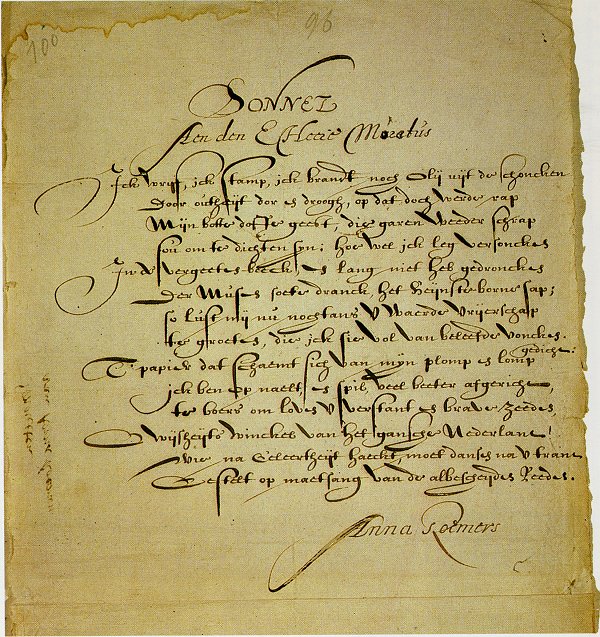 100
96
SONNET
Aen den E Heere Moretus
Ick wrijf, ick stamp, ick brandt noch Olij uijt de schoncken
Door outheijt dor es droogh, op dat doch werde rap
Mijn botte doffe geest, die garen weeder schrap
sou om te dichten sijn; hoe wel ick leg versoncken
In de vergeetes beeck, es lang niet heb gedroncken
Der Muses soete dranck, het Reijnste borne sap;
so lust mij nu nochtans U waerde vrijerschap
te groetes, die ick sie vol van beleefde voncken.
T papier dat schaemt sich van mijn plomp es lomp gedicht:
ick ben op naelt, es spil, veel beeter afgericht,
te boers om loves U verstant es brave zeedes
O wijsheijts winckel van het gantsche Nederlant
Wie na Geleertheijt haeckt, moet danses na U trant
Gestelt op maetsang van de albescheijdes Reedes.
Anna Roemers